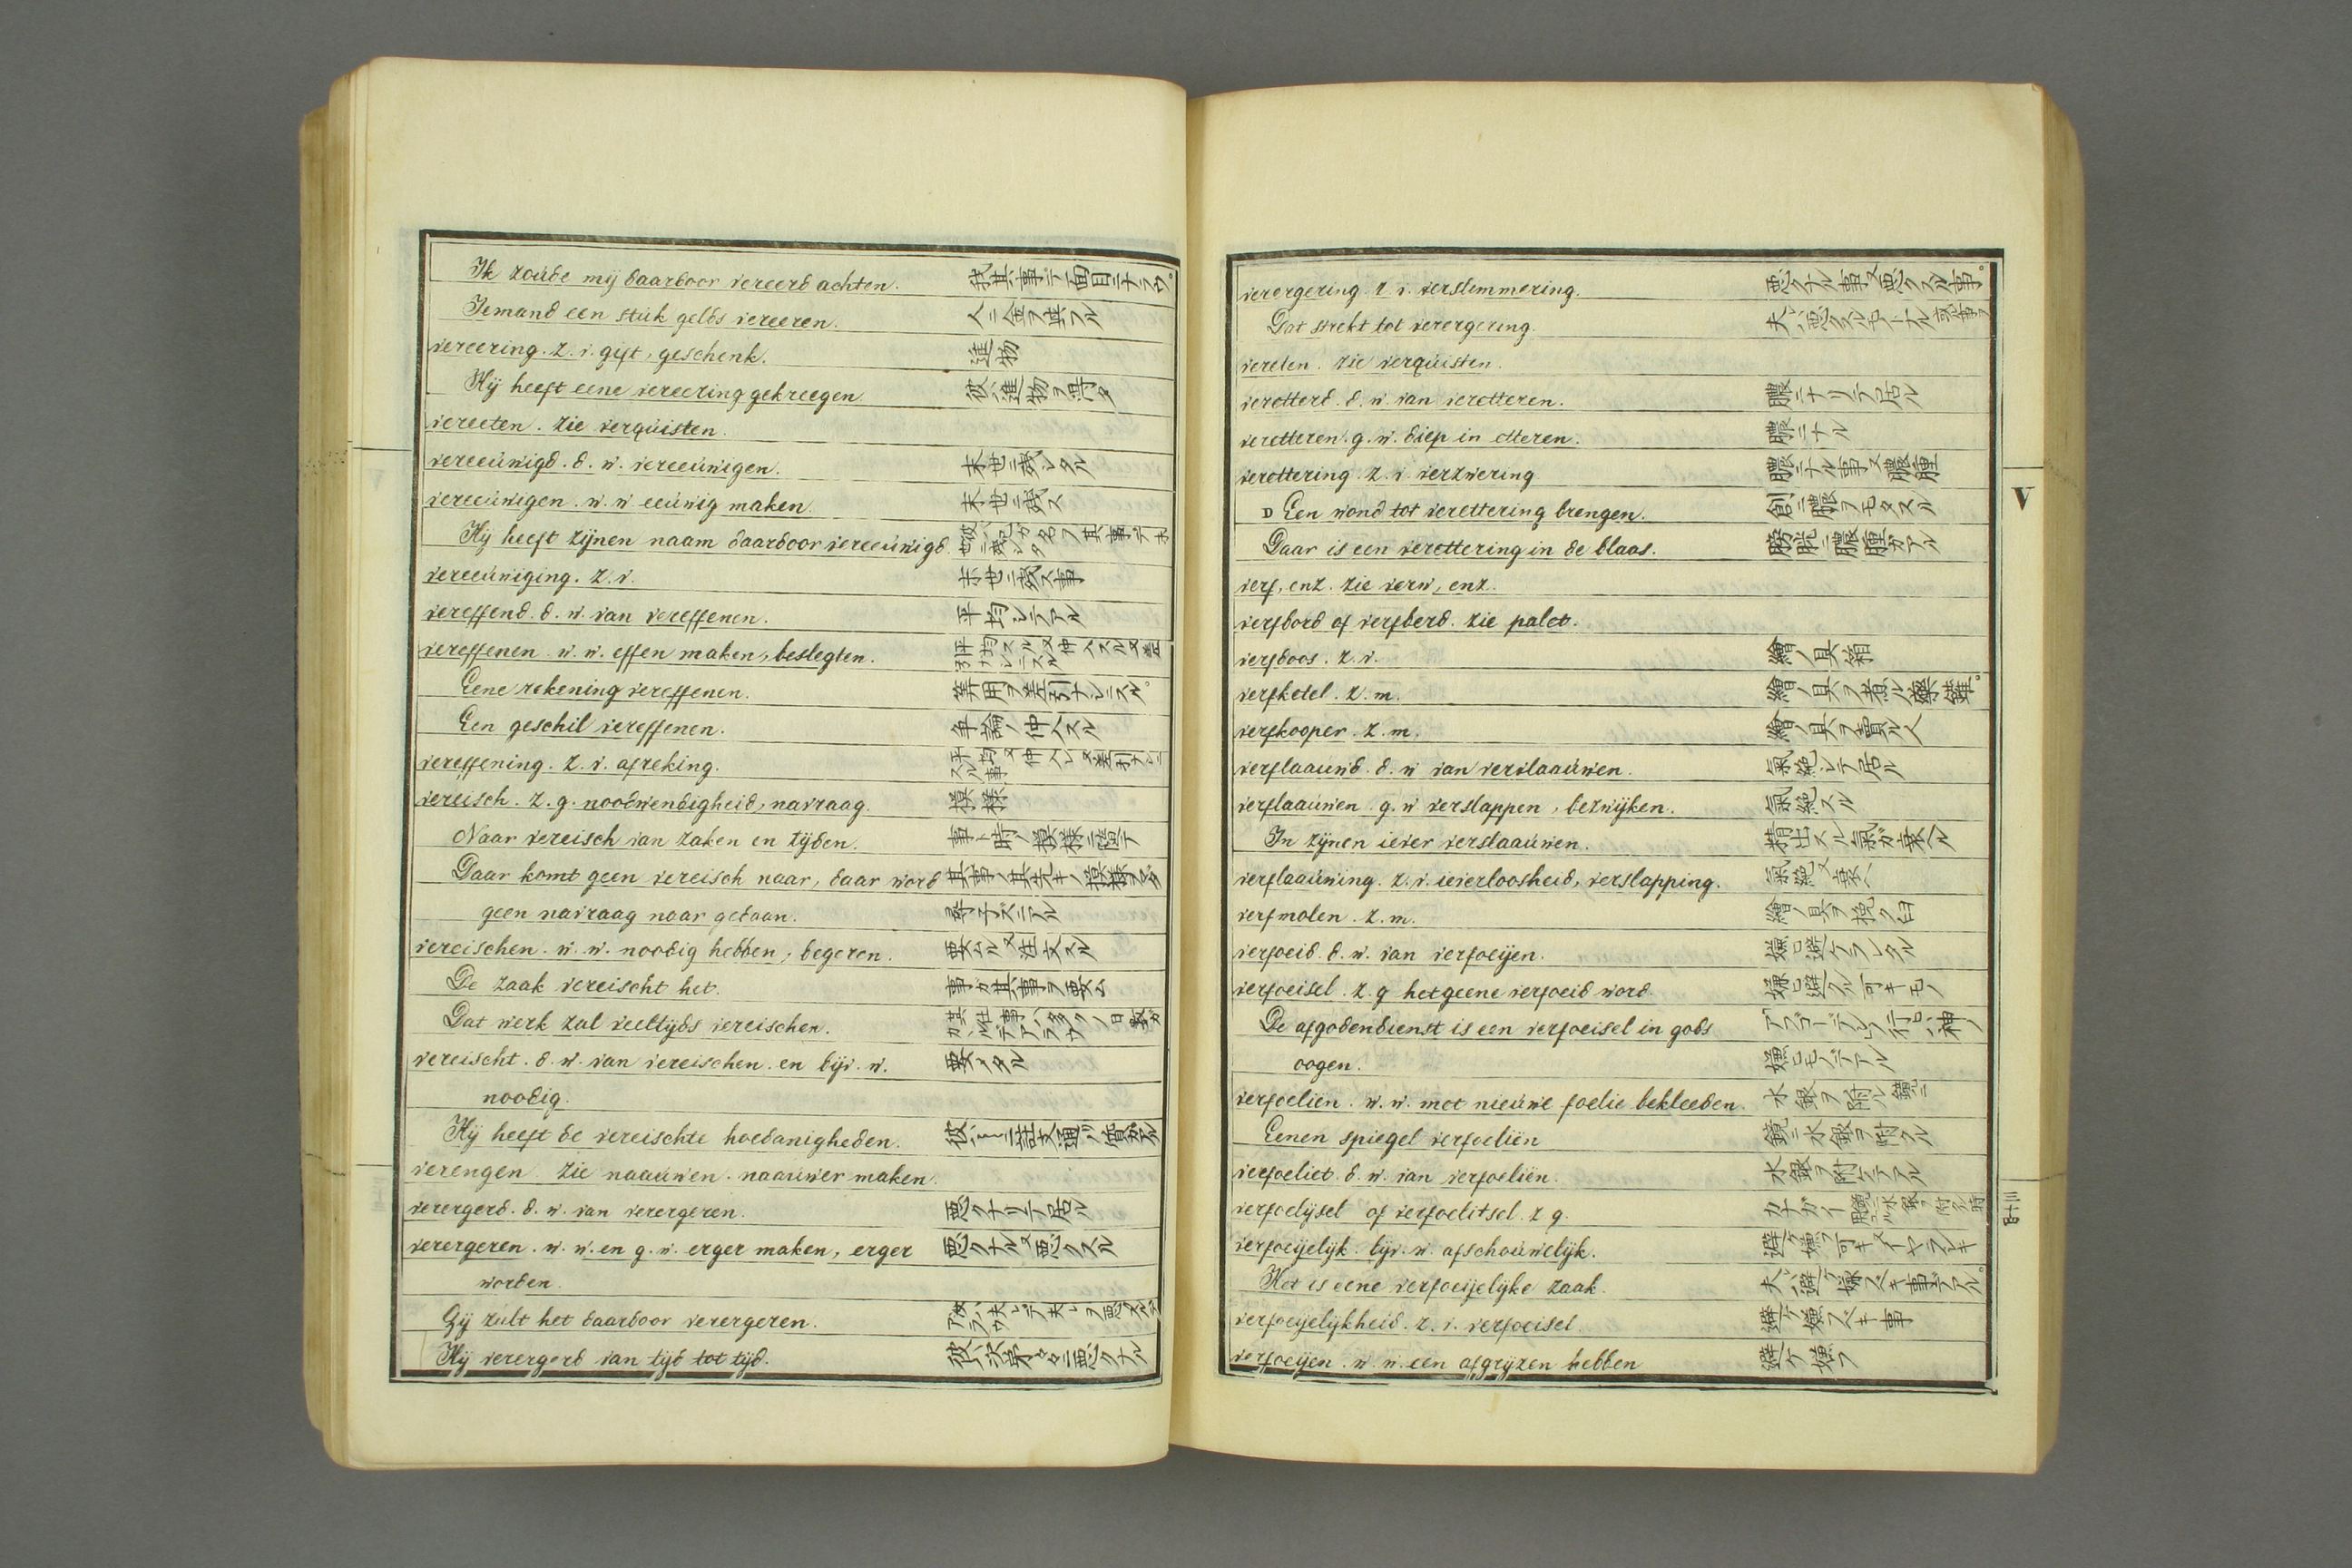 Ik zoúde mij daardoor vereerd achten. 我其事デ面目ニナラウ。
Iemand een stúk gelds vereeren. 人ニ金ヲ其フル
vereering. z. v. gift, geschenk. 進物
Hij heeft eene vereering gekreegen 彼ハ進物ヲ得タ
vereeten. zie verqúisten.
vereeúwigd. d. w. vereeúwigen. 末世ニ残レタル
vereeúwigen. w. w eeúwig maken. 末世ニ残ス
Hij heeft zijnen naam daardoor vereeúwigd.
vereeúwiging. z. v. 末世ニ残ス事
vereffend. d. w. van vereffenen. 平均シテアル
vereffenen w. w. effen maken, beslegten.
Eene rekening vereffenen. 算用ヲ差引ナシニスル。
Een geschil vereffenen. 争論ノ仲人スル
vereffening. z. v. afreking.
vereisch. z. g. noodwendigheid, navraag. 模様
Naar vereisch van zaken en tijden. 事ト時ノ模様ニ臨テ
Daar komt geen vereisch naar, daar word
geen navraag naar gedaan. 尋子ズニアル
vereischen. w. w. noodig hebben, begeren. 要ムル又注文スル
De zaak vereischt het. 事ガ其事ヲ要ム
Dat werk zal veeltijds vereischen.
vereischt. d. w. van vereischen. en bijv. w. 要メタル
noodig.
Hij heeft de vereischte hoedanigheden.
verengen zie naaúwen. naaúwer maken.
verergerd. d. w. van verergeren. 悪クナリテ居ル
verergeren. w. w. en g. w. erger maken, erger 悪クナル又悪クスル
worden.
Gij zult het daardoor verergeren.
Hij verergerd van tijd tot tijd. 彼ハ次第々々ニ悪クナル
verergering. z. v. verslemmering. 悪クナル事又悪クスル事。
Dat strekt tot verergering.
vereten. zie verqúisten.
veretterd. d. w. van veretteren. 膿ニナリテ居ル
veretteren. g. w. diep in etteren. 膿ニナル
verettering. z. v. verzwering 膿ニナル事又膿腫
D Een wond tot verettering brengen. 創ニ膿ヲモタスル
Daar is een verettering in de blaas. 膀胱ニ膿腫ガアル
verf, enz. zie verw, enz.
verfbord of verfberd. zie palet.
verfdoos. z. v. 繪ノ具箱
verfketel. z. m. 繪ノ具ヲ煮ル藥鑵。
verfkooper. z. m. 繪ノ具ヲ賣ル人
verflaauwd. d. w van verslaaúwen. 氣絶シテ居ル
verflaaúwen. g. w verslappen, bezwijken. 氣絶スル
In zijnen iever verslaaúwen. 精出スル氣ガ衰ヘル
verflaaúwing. z. v. ieverloosheid, verslapping. 氣絶又衰ヘ
verfmolen. z. m. 繪ノ具ヲ挽ク臼
verfoeid. d. w. van verfoeijen. 嫌ヒ避ケラレタル
verfoeisel. z. g hetgeene verfoeid word. 嫌ヒ避クル可キモノ
De afgodendienst is een verfoeisel in gods
oogen. 嫌ヒモノデアル
verfoelien. w. w. met nieúwe foelie bekleeden. 水銀ヲ附ル鏡ニ
Eenen spiegel verfoeliën 鏡ニ水銀ヲ附クル
verfoeliet. d. w. van verfoeliën. 水銀ヲ附ケテアル
verfoelijsel of verfoelitsel. z g.
verfoeijelijk. bijv. w. afschoúwelijk.
Het is eene verfoeijelijke zaak. 夫ハ避ケ嫌フベキ事デアル。
verfoeijelijkheid. z. v. verfoeisel. 避ケ嫌フベキ事
verfoeijen. w. w. een afgrijzen hebben 避ケ嫌フ
V